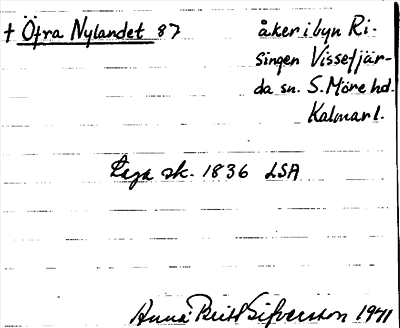 † Öfra Nylandet 87 åker i byn Ri-
singen Vissefjär-
da sn. S. Möre hd.
Kalmar l.
Laga sk. 1836 LSA
Anna Britt Sifversson 1941